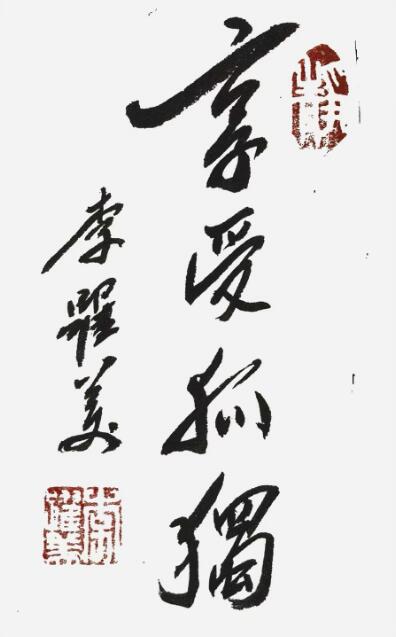 享受孤獨
李瞿美